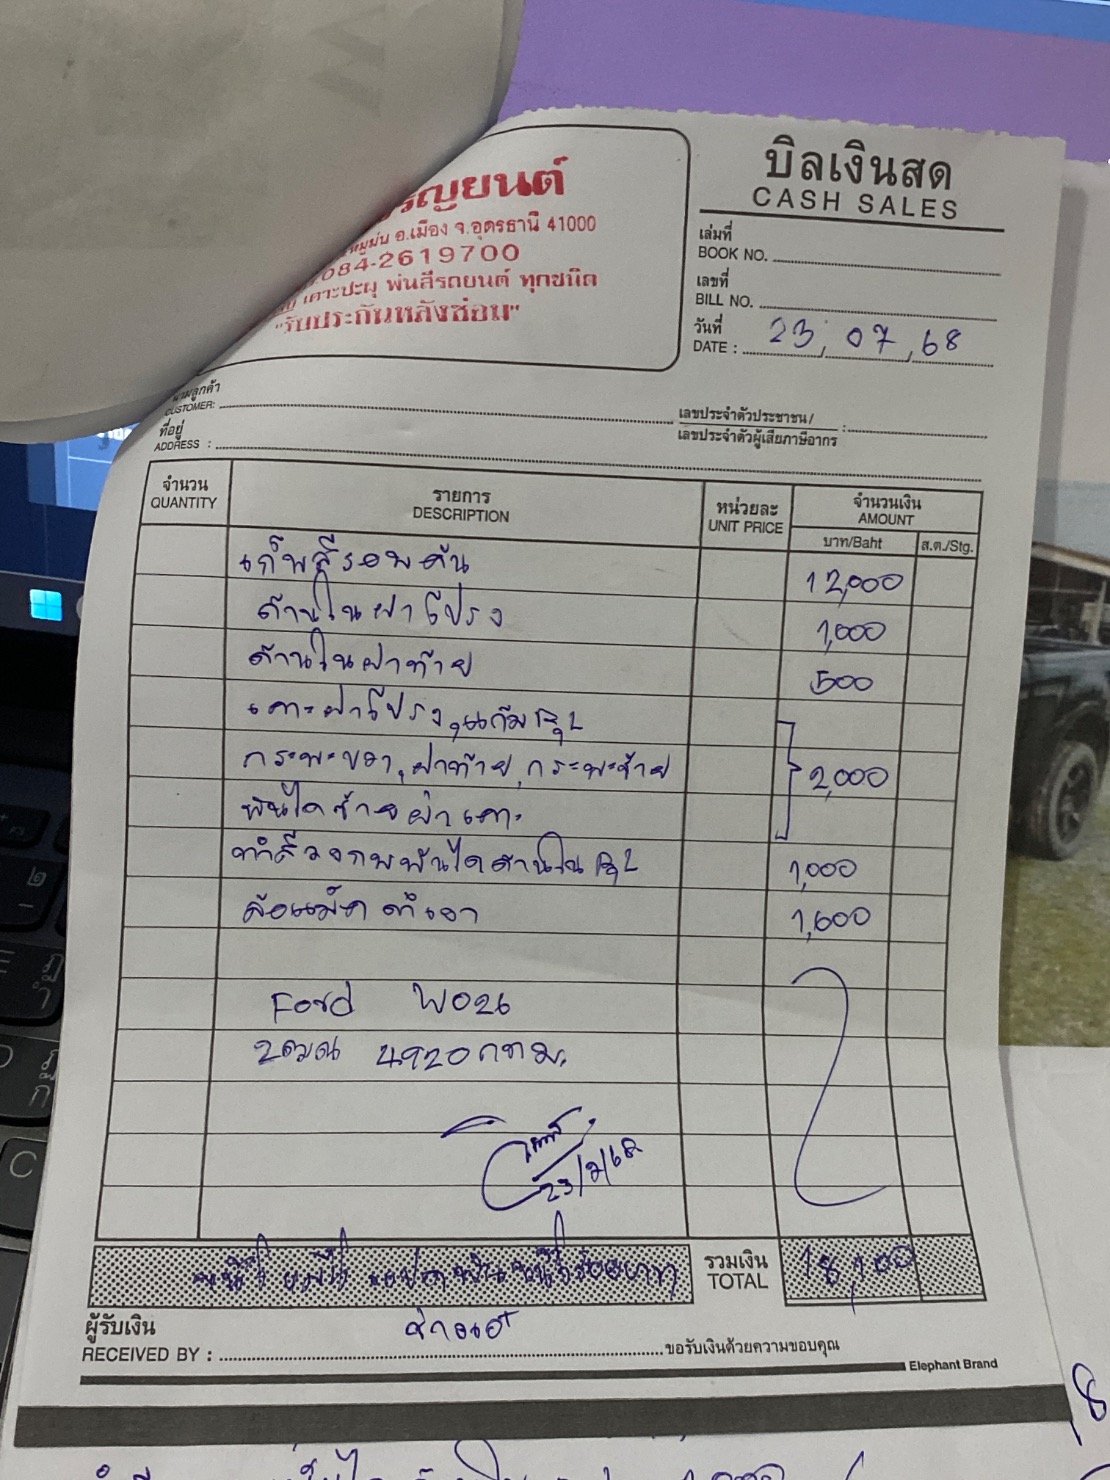 บิลเงินสด
CASH SALES
รัญยนต์
อ.เมือง จ.อุดรธานี 41000
084-2619700
เคาะปะผุ พ่นสีรถยนต์ ทุกชนิด
"รับประกันหลังซ่อม"
เล่มที่
BOOK NO.
เลขที่
BILL NO.
วันที่
DATE : 23, 07, 68
นามลูกค้า
CUSTOMER:
เลขประจำตัวประชาชน /
เลขประจำตัวผู้เสียภาษีอากร :
ที่อยู่
ADDRESS :
จำนวน
QUANTITY
รายการ
DESCRIPTION
หน่วยละ
UNIT PRICE
จำนวนเงิน
AMOUNT
บาท/Baht
ส.ต./Stg.
เก็บสีรอบคัน 12,000
ด้านในฝาโปรง 1,000
ด้านในฝาท้าย 500
เคาะฝาโปรง, แก้ม R,L
กระบะขวา, ฝาท้าย, กระบะซ้าย 2,000
บันไดซ้ายผ่าเคาะ
ทำสีวงกบบันไดด้านใน R,L 1,000
ล้อแม็ค ดำเงา 1,600
Ford
2ฒณ 4920 กทม.
23/7/68
รวมเงิน
TOTAL 18,100
ผู้รับเงิน
RECEIVED BY :
ขอรับเงินด้วยความขอบคุณ
Elephant Brand